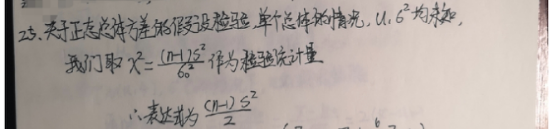 25、关于正态总体方差的假设检验,单个总体的情况,u,6²均未知,
我们取 χ²=(n-1)S²/6₀² 作为检验统计量
∴表达式为 (n-1)S²/2